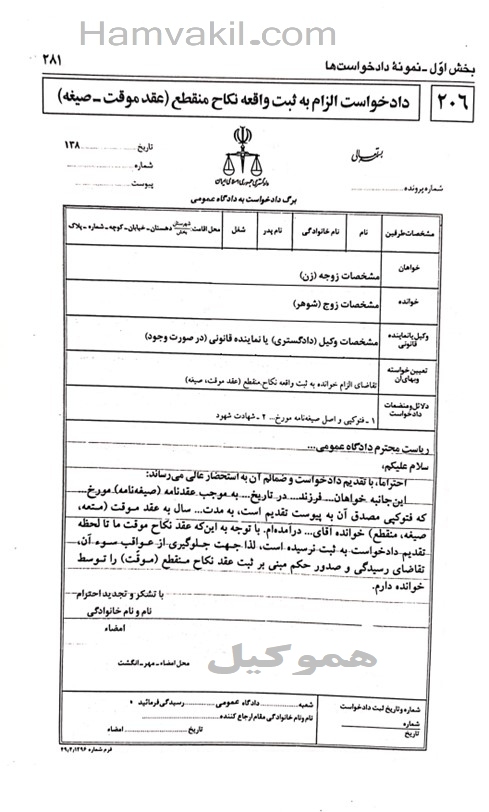 Hamvakil.com
بخش اوّل ـ نمونهٔ دادخواست‌ها
۲۸۱
۲۰۶
دادخواست الزام به ثبت واقعه نکاح منقطع (عقد موقت ـ صیغه)
بسمه‌تعالی
تاریخ.................... ۱۳۸
شماره....................
پیوست....................
شماره پرونده....................
دادگستری جمهوری اسلامی ایران
برگ دادخواست به دادگاه عمومی
مشخصات طرفین نام نام خانوادگی نام پدر شغل محل اقامت شهرستان بخش دهستان ـ خیابان ـ کوچه ـ شماره ـ پلاک
خواهان مشخصات زوجه (زن)
خوانده مشخصات زوج (شوهر)
وکیل یا نماینده قانونی مشخصات وکیل (دادگستری) یا نماینده قانونی (در صورت وجود)
تعیین خواسته وبهای آن تقاضای الزام خوانده به ثبت واقعه نکاح منقطع (عقد موقت، صیغه)
دلائل و منضمات دادخواست ۱ ـ فتوکپی و اصل صیغه‌نامه مورخ... ۲ ـ شهادت شهود
ریاست محترم دادگاه عمومی...
سلام علیکم،
احتراما، با تقدیم دادخواست و ضمائم آن به استحضار عالی می‌رساند:
این‌جانبه خواهان.... فرزند.... در تاریخ.... به موجب عقدنامه (صیغه‌نامه) مورخ...
که فتوکپی مصدق آن به پیوست تقدیم است، به مدت... سال به عقد موقت (متعه،
صیغه، منقطع) خوانده آقای... درآمده‌ام. با توجه به این‌که عقد نکاح موقت ما تا لحظه
تقدیم دادخواست به ثبت نرسیده است، لذا جهت جلوگیری از عواقب سوء آن،
تقاضای رسیدگی و صدور حکم مبنی بر ثبت عقد نکاح منقطع (موقت) را توسط
خوانده دارم.
با تشکر و تجدید احترام
نام و نام خانوادگی
امضاء
هموکیل
محل امضاء ـ مهر ـ انگشت
شماره و تاریخ ثبت دادخواست
شماره
تاریخ
شعبه.................... دادگاه عمومی.................... رسیدگی فرمائید
نام ونام خانوادگی مقام ارجاع کننده....................
تاریخ.................... امضاء
فرم شماره ۴۹/۲/۱۲۹۶